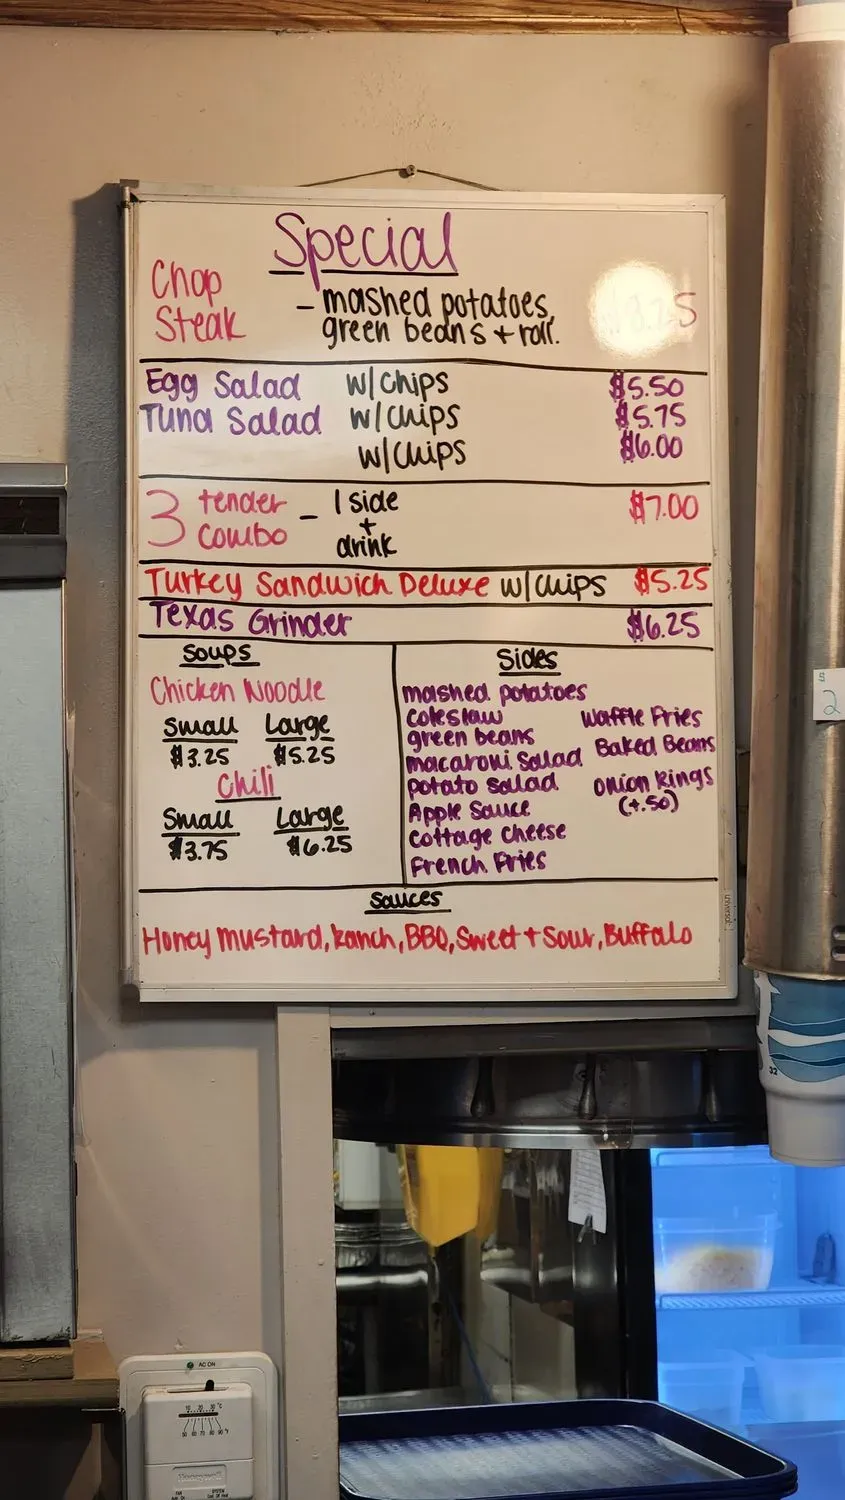 Special
Chop
Steak
- mashed potatoes,
green beans + roll.
Egg Salad w/chips $5.50
Tuna Salad w/chips $5.75
w/chips $6.00
3 tender
combo - 1 side
+
drink
$7.00
Turkey Sandwich Deluxe w/chips $5.25
Texas Grinder $6.25
Soups
Chicken Noodle
Small Large
$3.25 $5.25
Chili
Small Large
$3.75 $6.25
Sides
mashed potatoes
coleslaw
green beans
macaroni Salad
potato salad
Apple Sauce
cottage cheese
French Fries
Waffle Fries
Baked Beans
onion Rings
(+.50)
Sauces
Honey mustard, Ranch, BBQ, Sweet + Sour, Buffalo
S
2
32
AC ON
10 20 30 °C
50 60 70 80 90 °F
Honeywell
FAN
SYSTEM